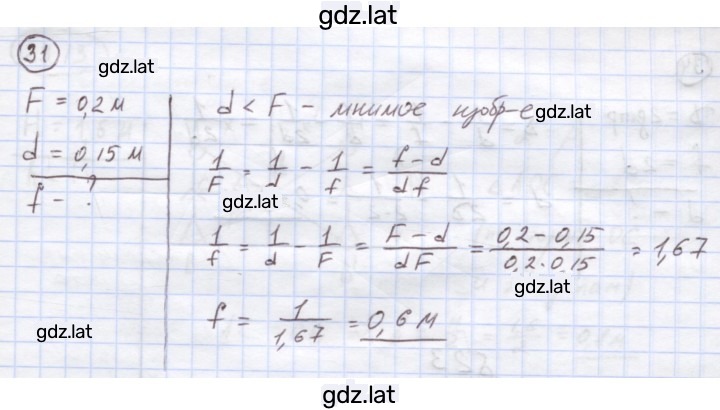 gdz.lat
31
gdz.lat
F = 0,2 м
d = 0,15 м
f - ?
d < F - мнимое изобр-е
gdz.lat
1/F = 1/d - 1/f = (f - d)/(d f)
gdz.lat
1/f = 1/d - 1/F = (F - d)/(dF) = (0,2 - 0,15)/(0,2·0,15) = 1,67
gdz.lat
f = 1/1,67 = 0,6 м
gdz.lat
gdz.lat